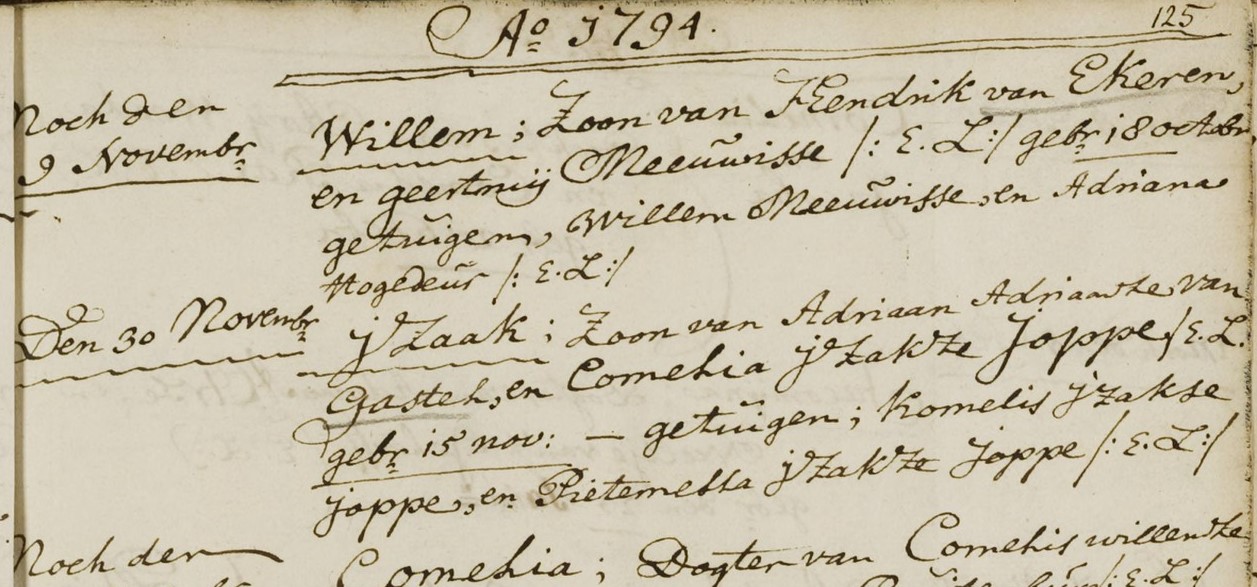 Aº 1794.
125
Noch den
9 Novembr
Willem; Zoon van Hendrik van Ekeren,
en geertruij Meeuwisse /: E. L:/ gebr 18 octobr
getuigen, Willem Meeuwisse, en Adriana
Hogedeur /: E. L:/
Den 30 Novembr
jZaak; Zoon van Adriaan Adriaanse van
Gastel, en Cornelia jZakze Joppe /: E. L.
gebr 15 nov: — getuigen; Kornelis jzakse
Joppe, en Pieternella jZakze Joppe /: E. L:/
Noch den
Cornelia; Dogter van Cornelis willemse
E. L:/